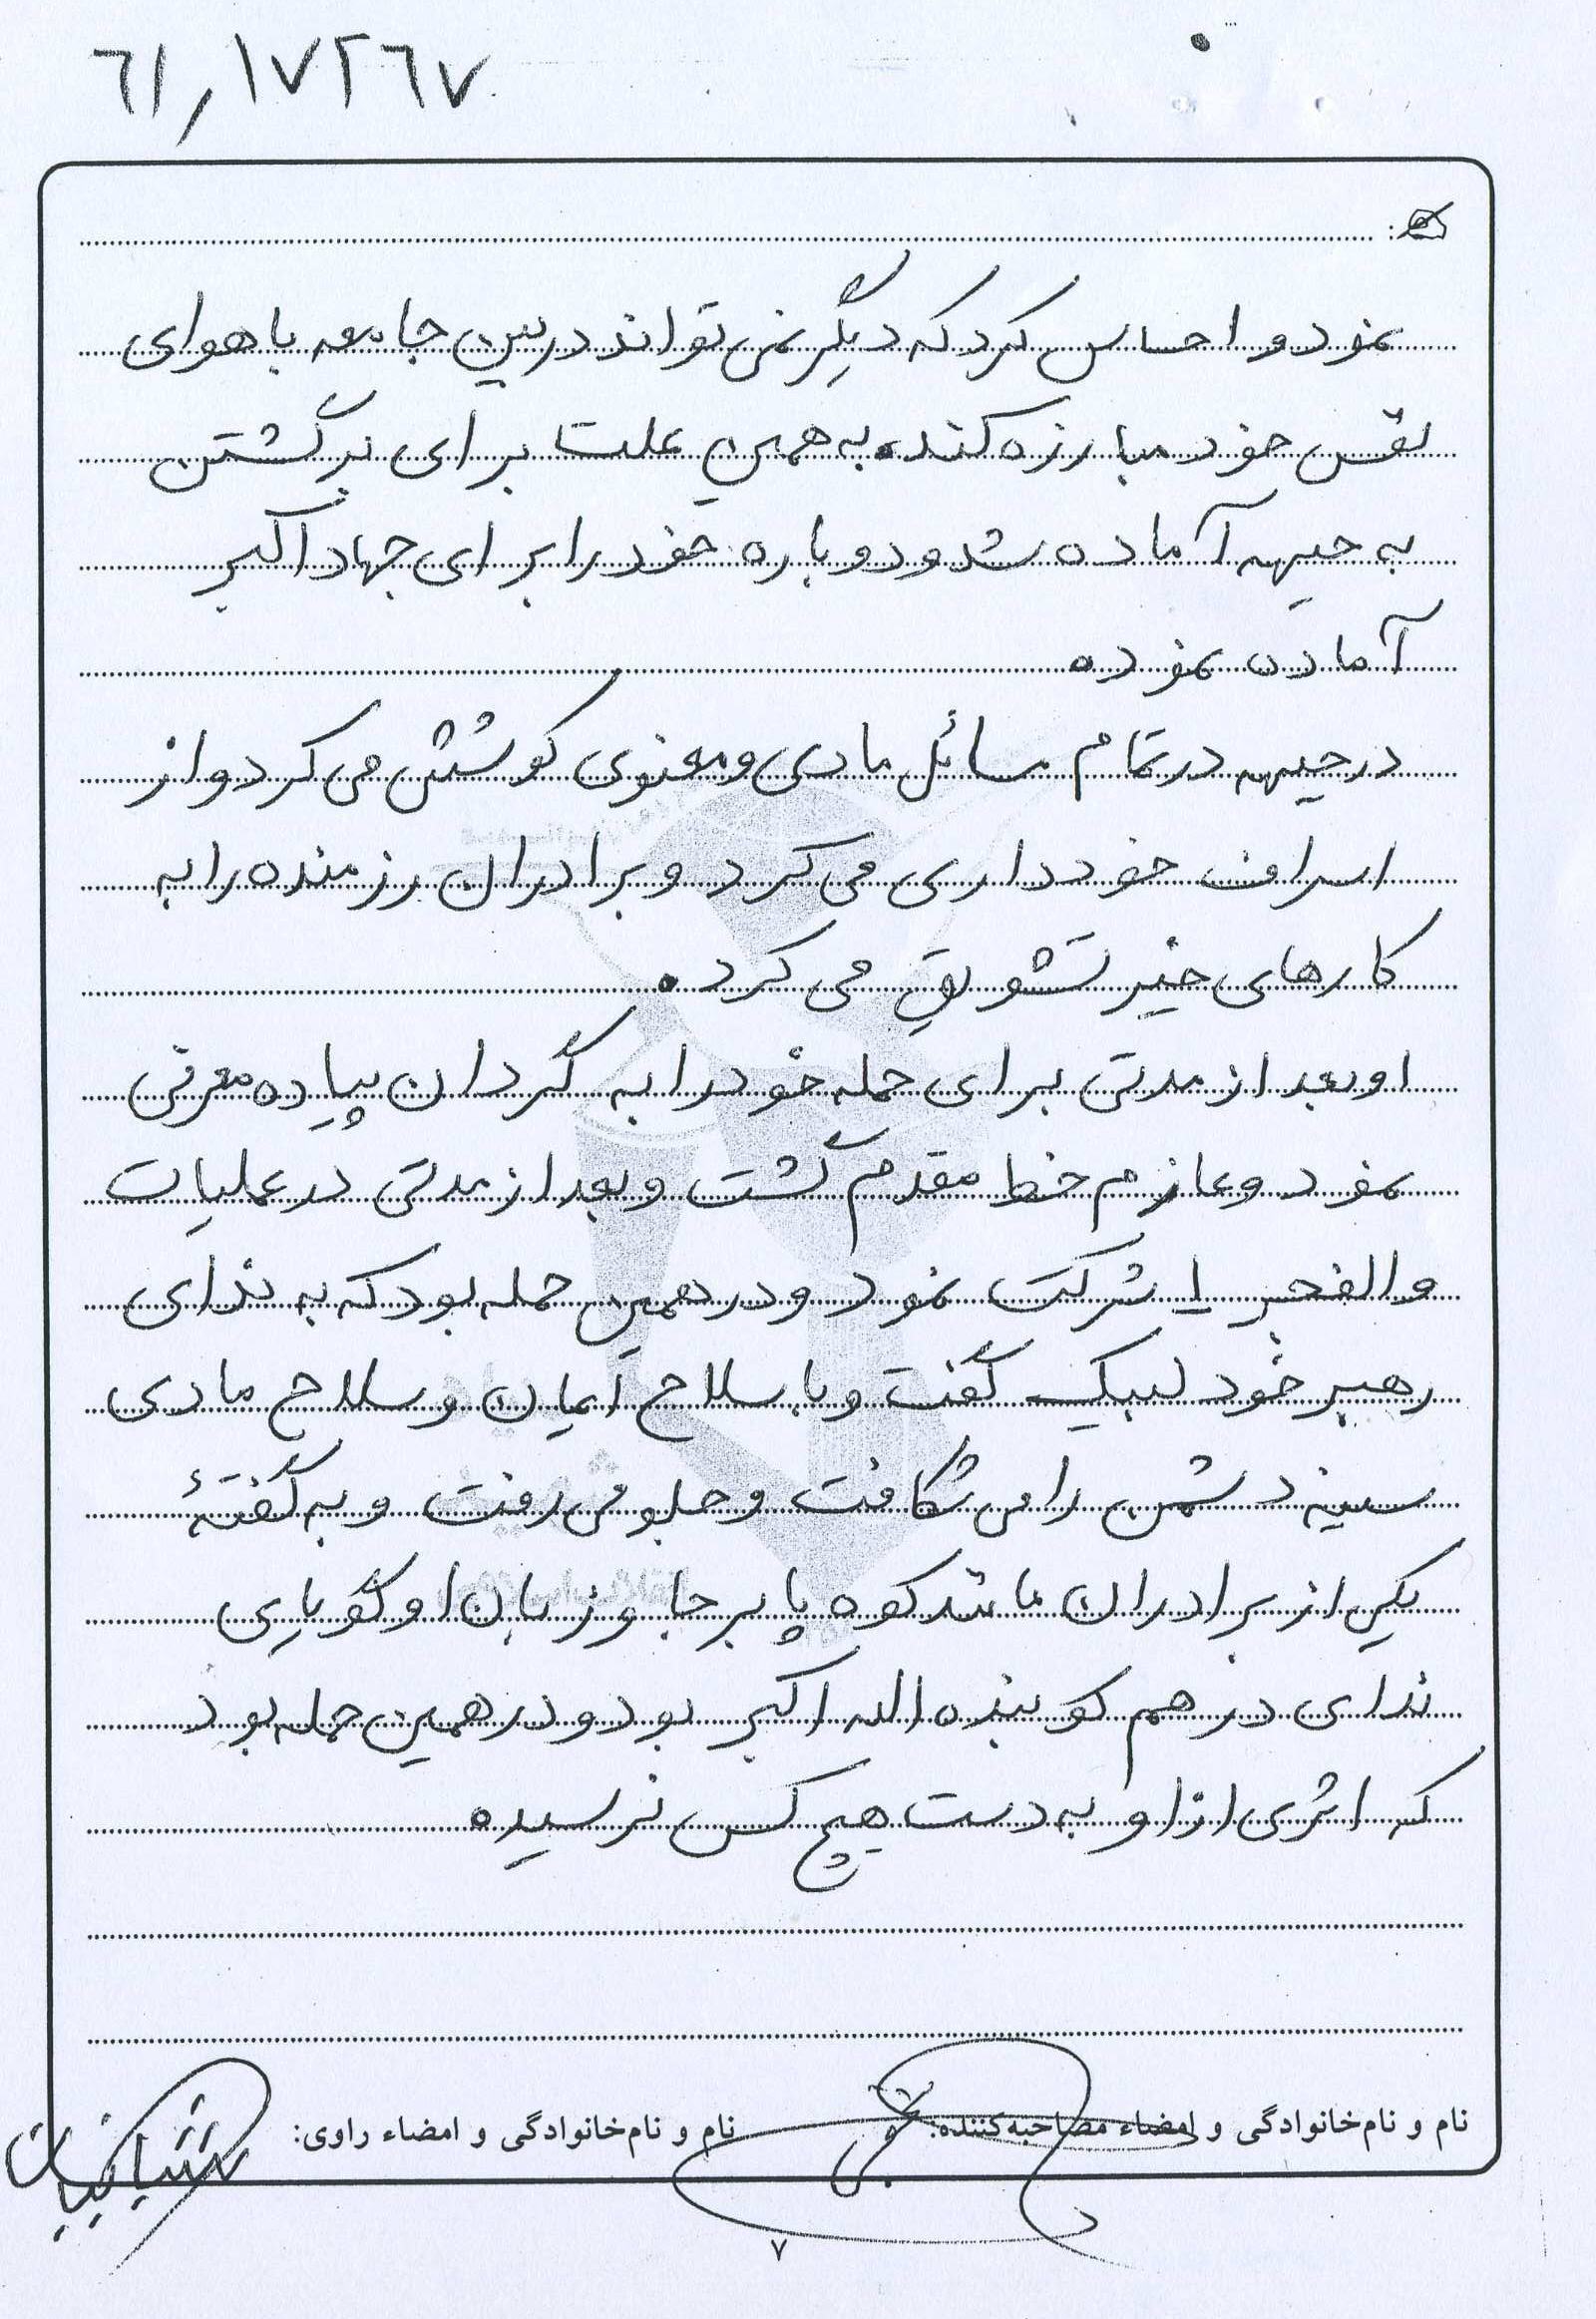 ۶۱٫۱۷۲۶۷
نمود و احساس کرد که دیگر نمی تواند در بین جامعه با هوای
نفس خود مبارزه کند. به همین علت برای برگشتن
به جبهه آماده شد و دوباره خود را برای جهاد اکبر
آماده نموده
در جبهه در تمام مسائل مادی و معنوی کوشش می کرد و از
اسراف خودداری می کرد و برادران رزمنده را به
کارهای خیر تشویق می کرد.
او بعد از مدتی برای حمله خود را به گردان پیاده معرفی
نمود و عازم خط مقدم گشت و بعد از مدتی در عملیات
والفجر ۱ شرکت نمود و در همین حمله بود که به ندای
رهبر خود لبیک گفت و با سلاح ایمان و سلاح مادی
سینه دشمن را می شکافت و جلو می رفت و به گفتهٔ
یکی از برادران مانند کوه پا بر جا و زبان او گویایی
ندای در هم کوبنده الله اکبر بود و در همین حمله بود
که اثری از او به دست هیچ کس نرسیده
نام و نام‌خانوادگی و امضاء مصاحبه‌کننده: نام و نام‌خانوادگی و امضاء راوی:
۷